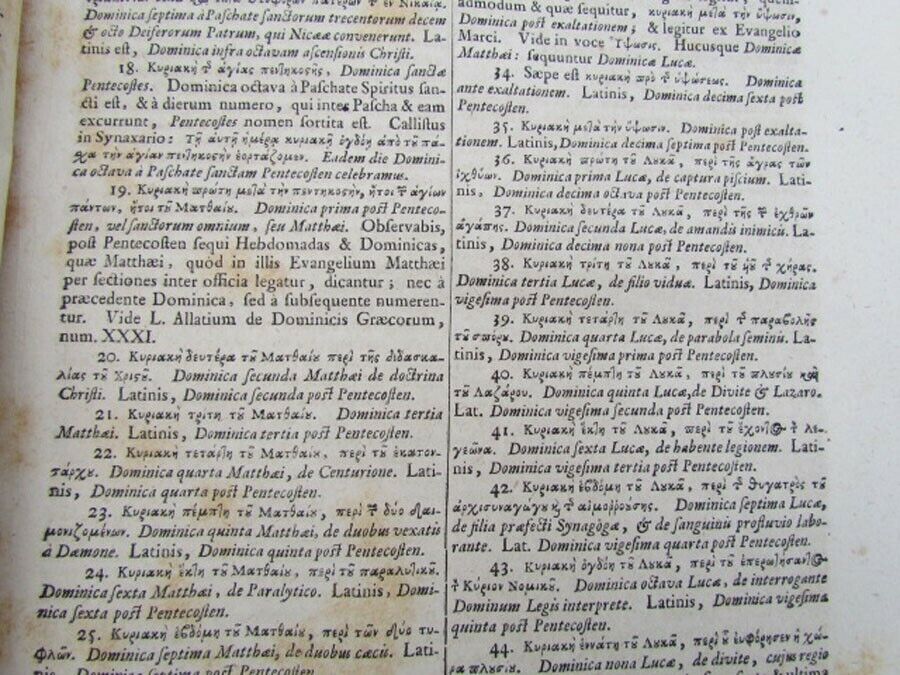 Dominica septima à Paschate sanctorum trecentorum decem
& octo Deiferorum Patrum, qui Nicææ convenerunt. La-
tinis est, Dominica infra octavam ascensionis Christi.
18. Κυριακὴ τ͂ ἁγίας πεντηκοστῆς, Dominica sanctæ
Pentecostes. Dominica octava à Paschate Spiritus san-
cti est, & à dierum numero, qui inter Pascha & eam
excurrunt, Pentecostes nomen sortita est. Callistus
in Synaxario: Τῇ αὐτῇ ἡμέρᾳ κυριακῇ ὀγδόῃ ἀπὸ τοῦ πά-
χα τὴν ἁγίαν πεντηκοστὴν ἑορτάζομεν. Eadem die Domini-
ca octava à Paschate sanctam Pentecosten celebramus.
19. Κυριακὴ πρώτη μετὰ τὴν πεντηκοστὴν, ἤτοι τ͂ ἁγίων
πάντων, ἤτοι τοῦ Ματθαίου. Dominica prima post Penteco-
sten, vel sanctorum omnium, seu Matthæi. Observabis,
post Pentecosten sequi Hebdomadas & Dominicas,
quæ Matthæi, quòd in illis Evangelium Matthæi
per sectiones inter officia legatur, dicantur; nec à
præcedente Dominica, sed à subsequente numeren-
tur. Vide L. Allatium de Dominicis Græcorum,
num. XXXI.
20. Κυριακὴ δευτέρα τοῦ Ματθαίου περὶ τῆς διδασκα-
λίας τοῦ Χριστοῦ. Dominica secunda Matthæi de doctrina
Christi. Latinis, Dominica secunda post Pentecosten.
21. Κυριακὴ τρίτη τοῦ Ματθαίου. Dominica tertia
Matthæi. Latinis, Dominica tertia post Pentecosten.
22. Κυριακὴ τετάρτη τοῦ Ματθαίου, περὶ τοῦ ἑκατον-
τάρχου. Dominica quarta Matthæi, de Centurione. Lati-
nis, Dominica quarta post Pentecosten.
23. Κυριακὴ πέμπτη τοῦ Ματθαίου, περὶ τ͂ δύο δαι-
μονιζομένων. Dominica quinta Matthæi, de duobus vexatis
à Dæmone. Latinis, Dominica quinta post Pentecosten.
24. Κυριακὴ ἕκτη τοῦ Ματθαίου, περὶ τοῦ παραλυτικοῦ.
Dominica sexta Matthæi, de Paralytico. Latinis, Domi-
nica sexta post Pentecosten.
25. Κυριακὴ ἑβδόμη τοῦ Ματθαίου, περὶ τῶν δύο τυ-
φλῶν. Dominica septima Matthæi, de duobus cæcis. Lati-
admodum & quæ sequitur, κυριακὴ μετὰ τὴν ὕψωσιν,
Dominica post exaltationem; & legitur ex Evangelio
Marci. Vide in voce Ὕψωσις. Hucusque Dominicæ
Matthæi: sequuntur Dominicæ Lucæ.
34. Sæpe est κυριακὴ πρὸ τ͂ ὑψώσεως. Dominica
ante exaltationem. Latinis, Dominica decima sexta post
Pentecosten.
35. Κυριακὴ μετὰ τὴν ὕψωσιν. Dominica post exalta-
tionem. Latinis, Dominica decima septima post Pentecosten.
36. Κυριακὴ πρώτη τοῦ Λουκᾶ, περὶ τῆς ἄγρας τῶν
ἰχθύων. Dominica prima Lucæ, de captura piscium. Lati-
nis, Dominica decima octava post Pentecosten.
37. Κυριακὴ δευτέρα τοῦ Λουκᾶ, περὶ τῆς τ͂ ἐχθρῶν
ἀγάπης. Dominica secunda Lucæ, de amandis inimicis. La-
tinis, Dominica decima nona post Pentecosten.
38. Κυριακὴ τρίτη τοῦ Λουκᾶ, περὶ τοῦ ὑοῦ τ͂ χήρας.
Dominica tertia Lucæ, de filio viduæ. Latinis, Dominica
vigesima post Pentecosten.
39. Κυριακὴ τετάρτη τοῦ Λουκᾶ, περὶ τ͂ παραβολῆς
τοῦ σπόρου. Dominica quarta Lucæ, de parabola seminis. La-
tinis, Dominica vigesima prima post Pentecosten.
40. Κυριακὴ πέμπτη τοῦ Λουκᾶ, περὶ τοῦ πλουσίου καὶ
τοῦ Λαζάρου. Dominica quinta Lucæ, de Divite & Lazaro.
Lat. Dominica vigesima secunda post Pentecosten.
41. Κυριακὴ ἕκτη τοῦ Λουκᾶ, περὶ τοῦ ἔχοντος τ͂ λε-
γεῶνα. Dominica sexta Lucæ, de habente legionem. Lati-
nis, Dominica vigesima tertia post Pentecosten.
42. Κυριακὴ ἑβδόμη τοῦ Λουκᾶ, περὶ τ͂ θυγατρὸς τοῦ
ἀρχισυναγώγου, κ τ͂ αἱμοῤῥούσης. Dominica septima Lucæ,
de filia præfecti Synagógæ, & de sanguinis profluvio labo-
rante. Lat. Dominica vigesima quarta post Pentecosten.
43. Κυριακὴ ὀγδόη τοῦ Λουκᾶ, περὶ τοῦ ἐπερωτήσαντος
τ͂ Κύριον Νομικοῦ. Dominica octava Lucæ, de interrogante
Dominum Legis interprete. Latinis, Dominica vigesima
quinta post Pentecosten.
44. Κυριακὴ ἐννάτη τοῦ Λουκᾶ, περὶ οὗ εὐφόρησεν ἡ χώ-
ρα πλουσίου. Dominica nona Lucæ, de divite, cujus regio